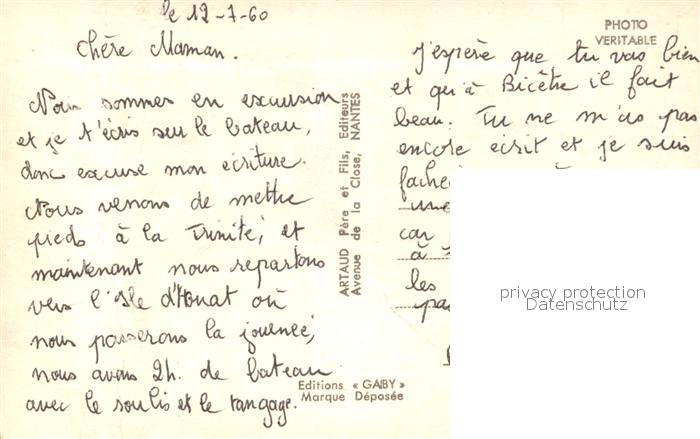 le 12-7-60
Chère Maman.
Nous sommes en excursion
et je t'écris sur le bateau,
donc excuse mon écriture.
Nous venons de mettre
pieds à la Trinité, et
maintenant nous repartons
vers l'Isle d'Houat où
nous passerons la journeé,
nous avons 2h. de bateau
avec le roulis et le tangage.
ARTAUD Père et Fils, Editeurs
Avenue de la Close, NANTES
Editions « GABY »
Marque Déposée
PHOTO
VERITABLE
J'espère que tu vas bien
et qu'à Bicêtre il fait
beau. Tu ne m'as pas
encore écrit et je suis
faché
car
à
les
pas
privacy protection
Datenschutz